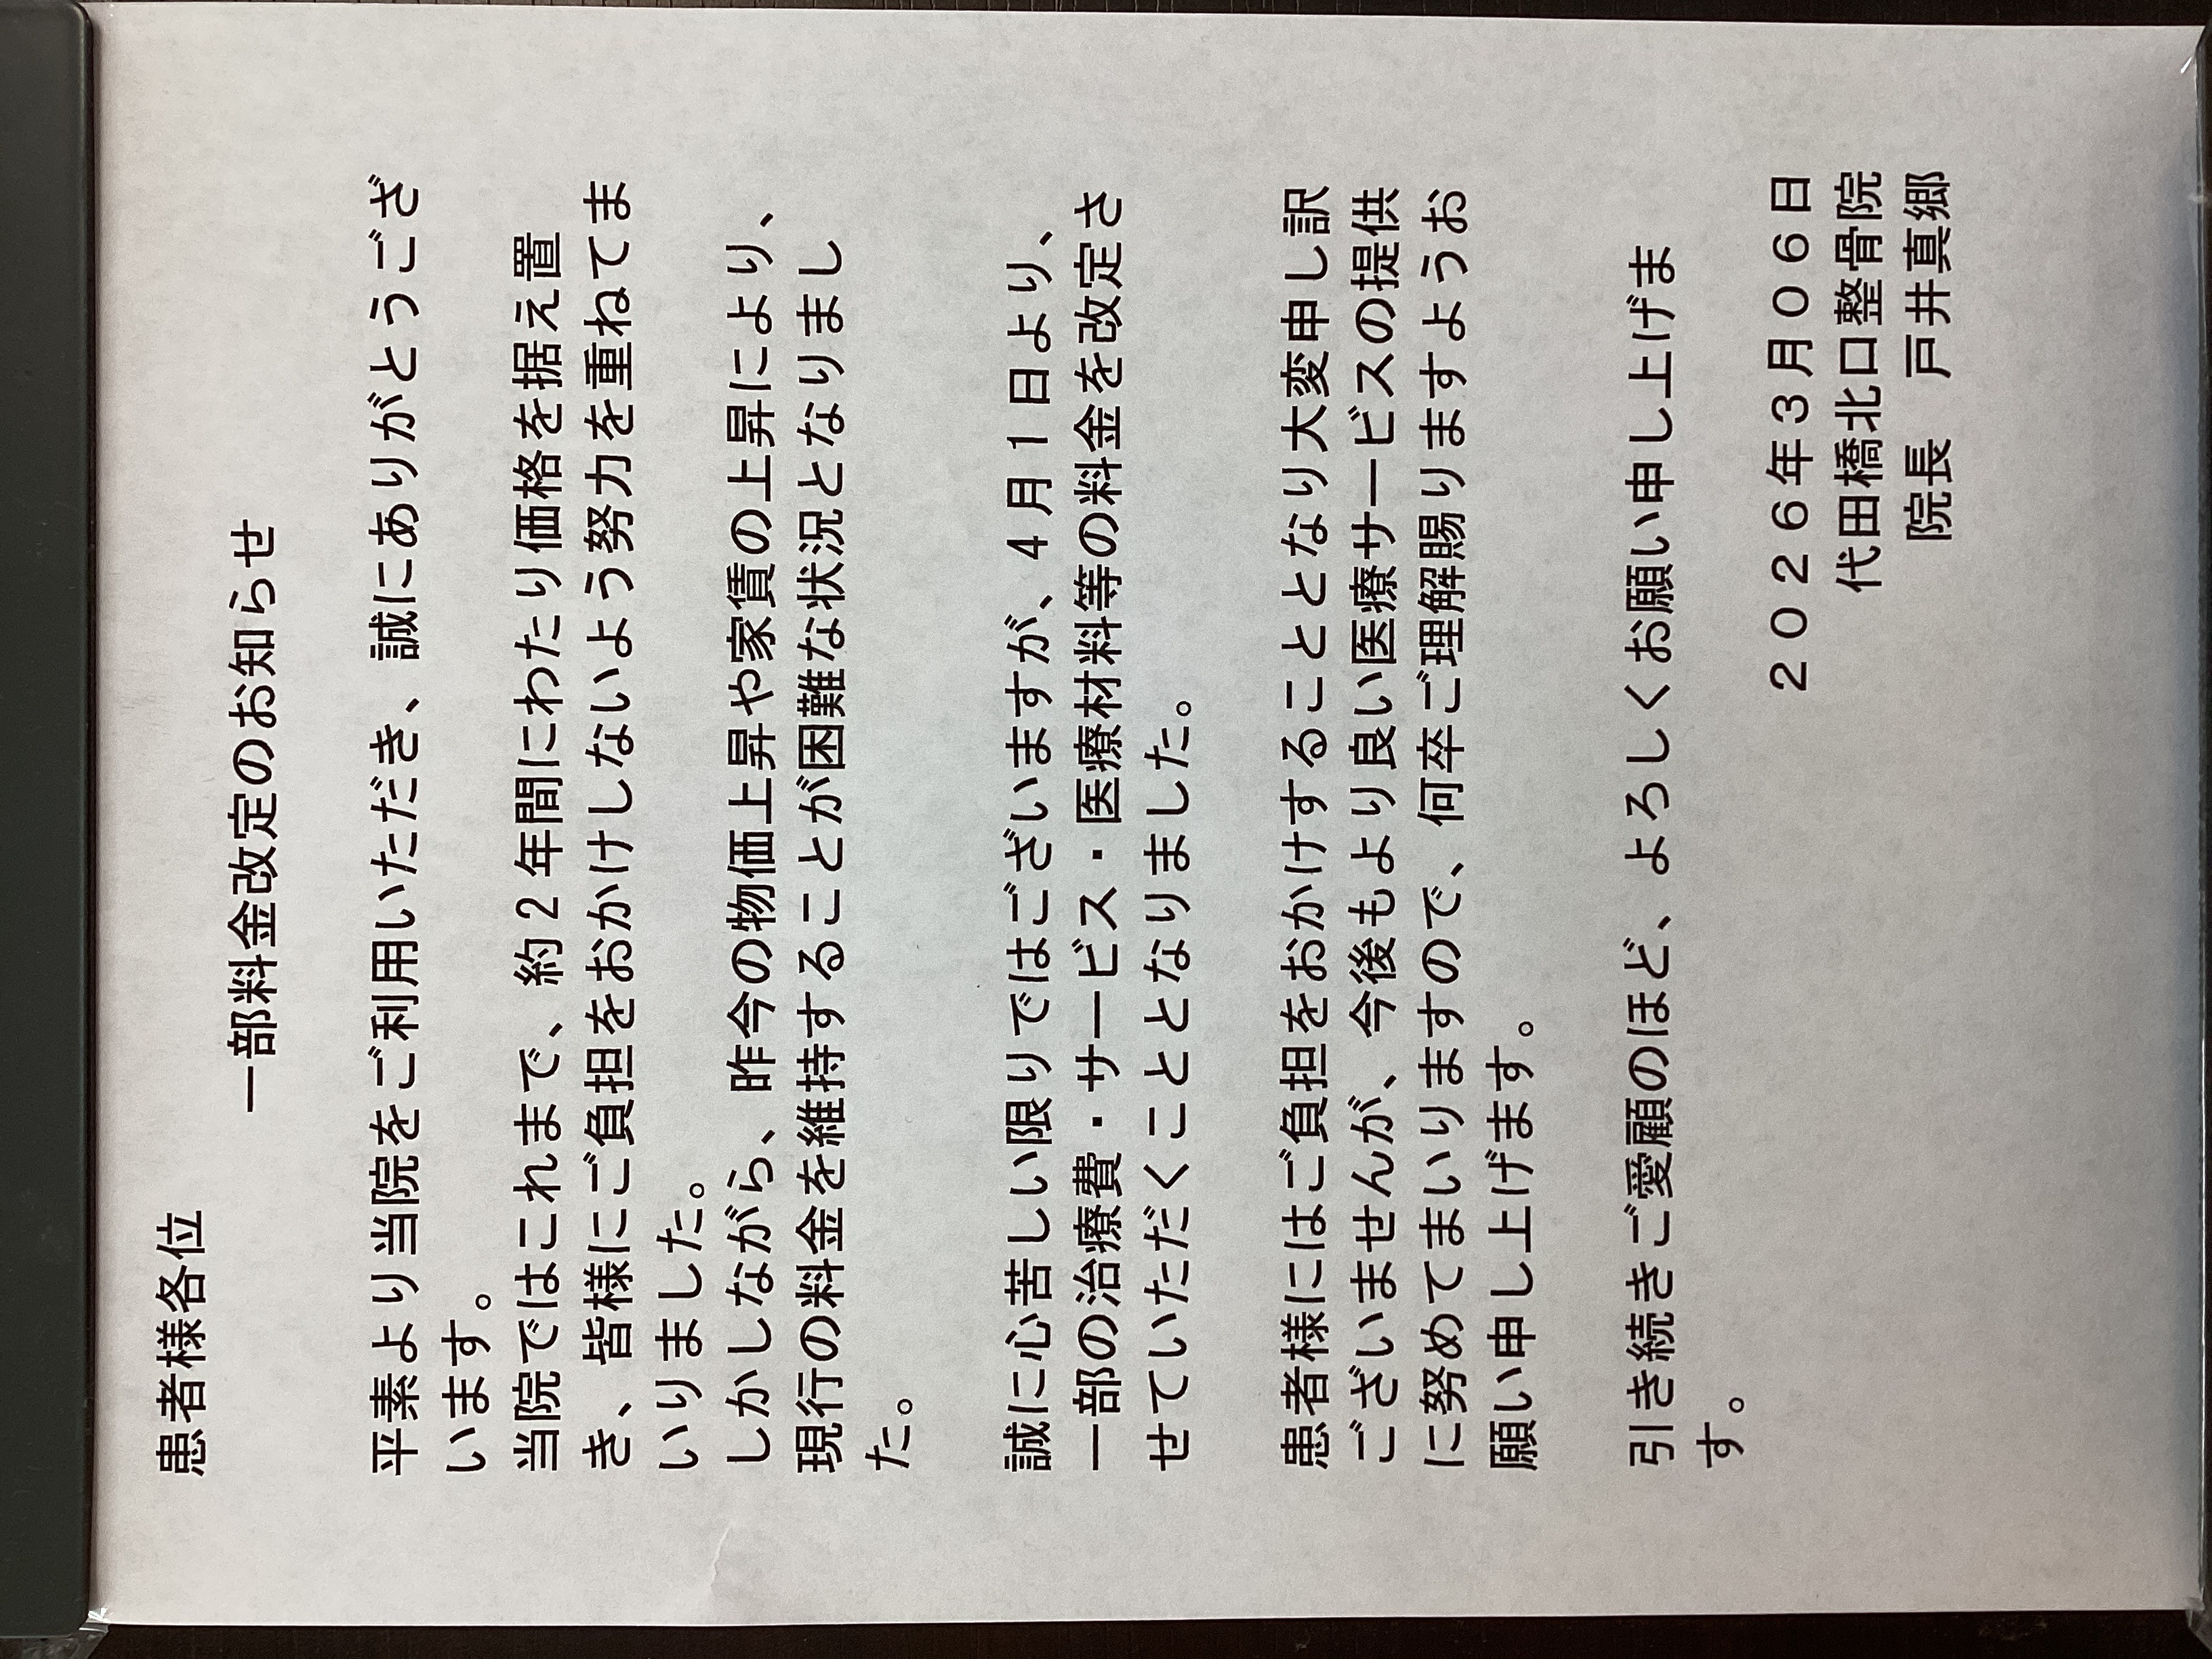 患者様各位
一部料金改定のお知らせ
平素より当院をご利用いただき、誠にありがとうござ
います。
当院ではこれまで、約2年間にわたり価格を据え置
き、皆様にご負担をおかけしないよう努力を重ねてま
いりました。
しかしながら、昨今の物価上昇や家賃の上昇により、
現行の料金を維持することが困難な状況となりまし
た。
誠に心苦しい限りではございますが、4月1日より、
一部の治療費・サービス・医療材料等の料金を改定さ
せていただくこととなりました。
患者様にはご負担をおかけすることとなり大変申し訳
ございませんが、今後もより良い医療サービスの提供
に努めてまいりますので、何卒ご理解賜りますようお
願い申し上げます。
引き続きご愛顧のほど、よろしくお願い申し上げま
す。
２０２６年３月０６日
代田橋北口整骨院
院長　戸井真郷